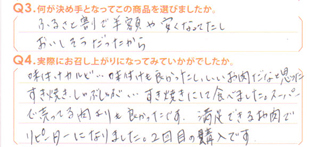 Q3.何が決め手となってこの商品を選びましたか。
ふるさと割で半額や安くなってたし
おいしそうだったから
Q4.実際にお召し上がりになってみていかがでしたか。
味は良かったし、いいお肉だなと思った
すき焼き、しゃぶしゃぶ… すき焼きにして食べました。スーパー
で売ってる肉よりも良かったです。満足できるお肉で
リピーターになりました。2回目の購入です。